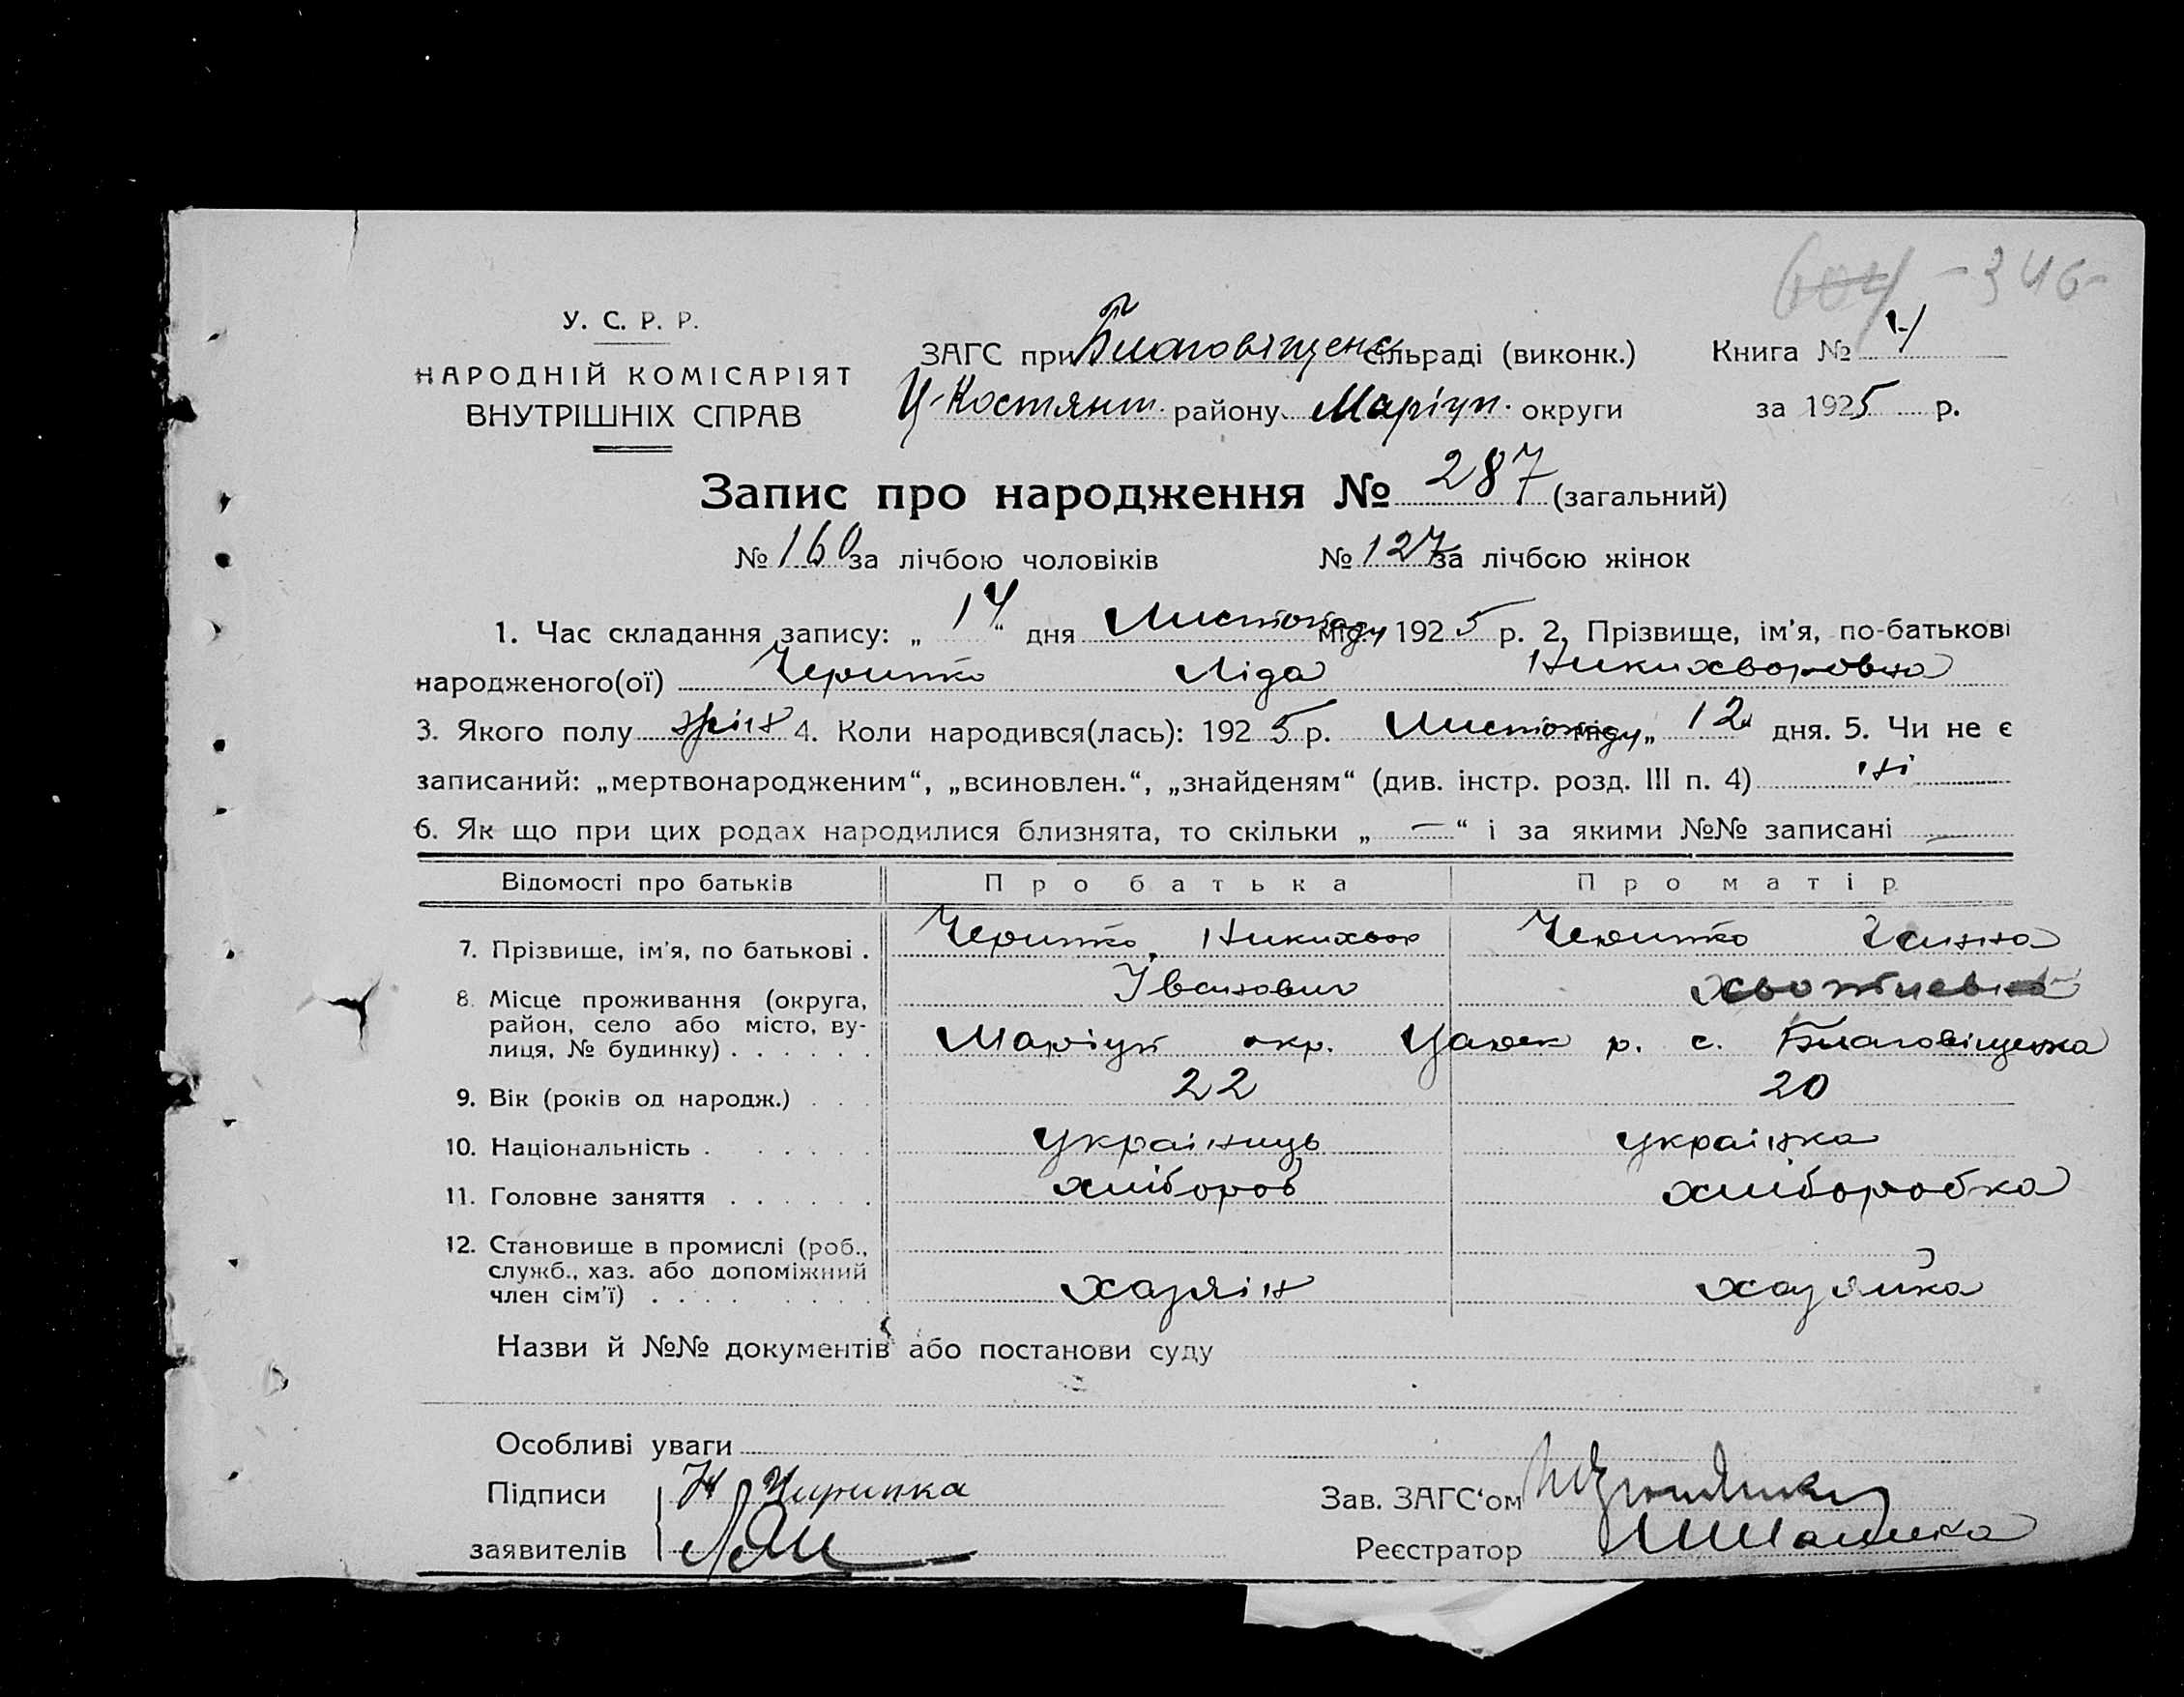 604 - 346 -
У. С. Р. Р.
НАРОДНІЙ КОМІСАРІЯТ
ВНУТРІШНІХ СПРАВ
ЗАГС при Благовіщенс сільраді (виконк.) Книга № 4
Ц-Костянт. району Маріуп. округи за 1925 р.
Запис про народження № 287 (загальний)
№ 160 за лічбою чоловіків № 127 за лічбою жінок
1. Час складання запису: „14“ дня Листопаду міс. 1925 р. 2. Прізвище, ім’я, по-батькові
народженого(ої) Черипко Ліда Никихворовна
3. Якого полу жін 4. Коли народився(лась): 1925 р. Листопаду міс. „12“ дня. 5. Чи не є
записаний: „мертвонародженим“, „всиновлен.“, „знайденям“ (див. інстр. розд. III п. 4) ні
6. Як що при цих родах народилися близнята, то скільки „ — “ і за якими №№ записані —
Відомості про батьків Про батька Про матір
7. Прізвище, ім’я, по батькові . Черипко Никихвор Черипко Ганна
Іванович
8. Місце проживання (округа,
район, село або місто, ву-
лиця, № будинку) . . . . . . Маріуп окр. Царек р. с. Благовіщенка
9. Вік (років од народж.) . . . 22 20
10. Національність . . . . . . україниць українка
11. Головне заняття . . . . . . хлібороб хліборобка
12. Становище в промислі (роб.,
служб., хаз. або допоміжний
член сім’ї) . . . . . . . . хазяїн хазяйка
Назви й №№ документів або постанови суду
Особливі уваги
Підписи Н Чирипка Зав. ЗАГС‘ом
заявителів Реєстратор